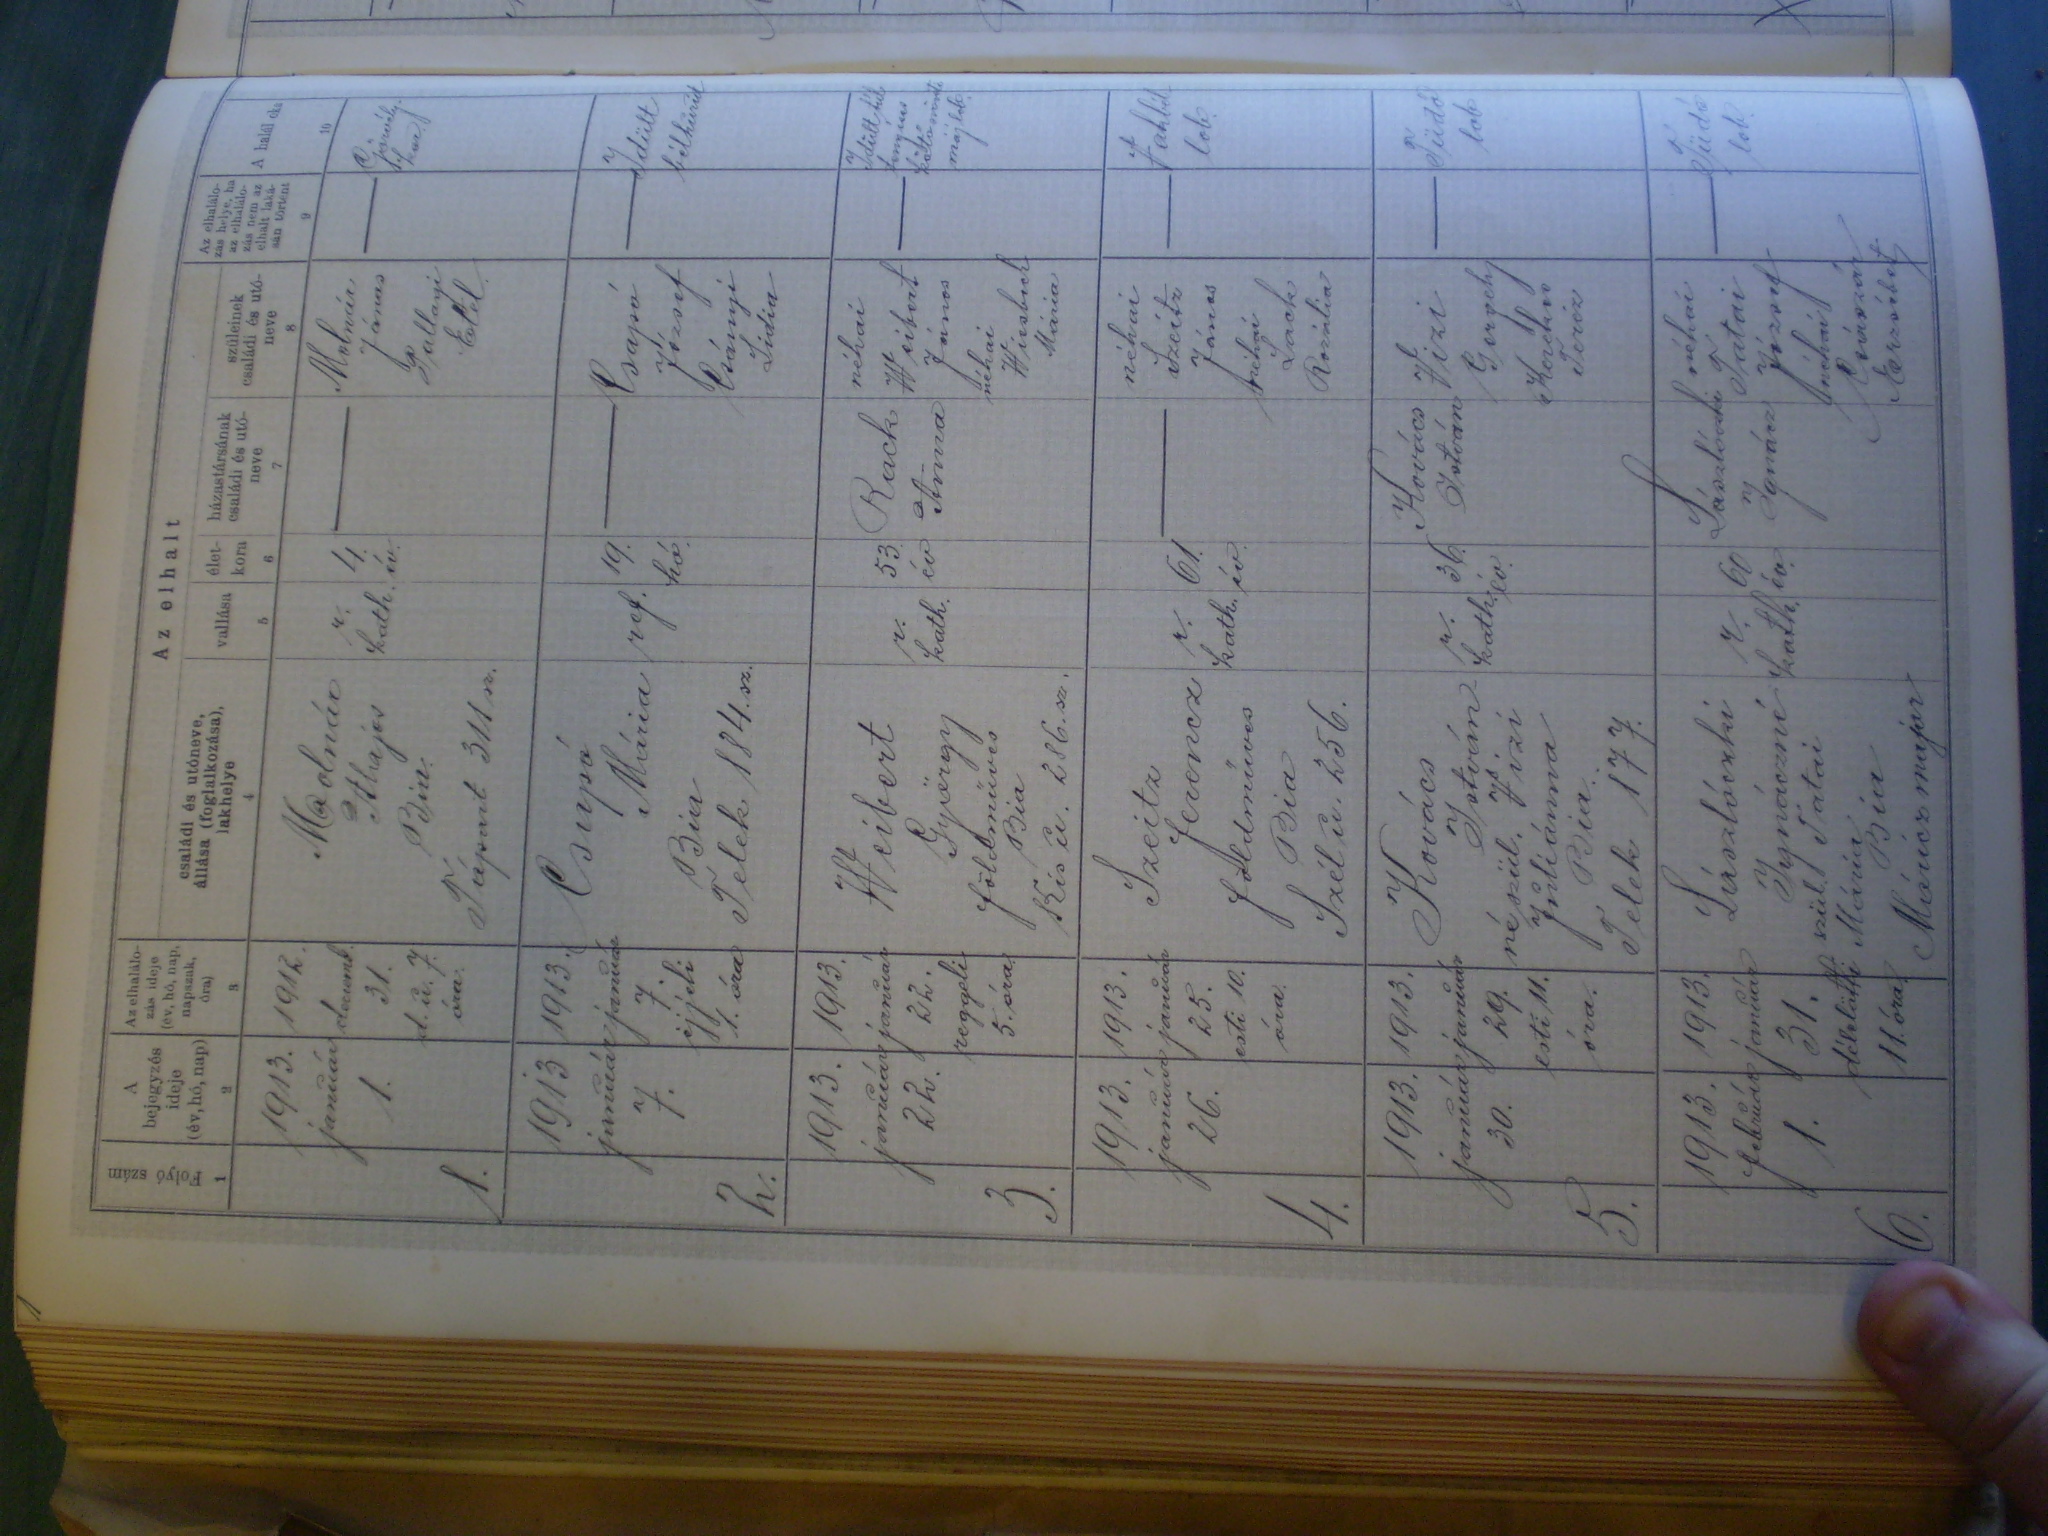 Az elhalt
Folyó szám
A bejegyzés ideje (év, hó, nap)
Az elhalálo-
zás ideje
(év, hó, nap,
napszak,
óra)
családi és utóneve,
állása (foglalkozása),
lakhelye
vallása
élet-
kora
házastársának
családi és utó-
neve
szüleinek
családi és utó-
neve
Az elhalálo-
zás helye, ha
az elhalálo-
zás nem az
elhalt laká-
sán történt
A halál oka
1 2 3 4 5 6 7 8 9 10
1.
1913.
január
1.
1912.
decemb.
31.
d. u. 7.
óra.
Molnár
Mátyás
Bia
311
r.
kath.
4.
év.
Molnár
János
Gallagi
Etel
2.
1913
január
7.
1913.
január
7.
éjjeli
1. óra
Csapó
Mária
Bia
Telek 184. sz.
ref.
19.
hó.
Csapó
József
Csányi
Lidia
Idült
bélhurut
3.
1913.
január
22.
1913.
január
22.
reggeli
5. óra.
Weibert
György
földműves
Bia
Kis u. 286. sz.
r.
kath.
53
év
Rack
Anna
néhai
Weibert
János
néhai
Wiesbeck
Mária
4.
1913.
január
26.
1913.
január
25.
esti 10.
óra.
Szeitz
Ferencz
földműves
Bia
Szél u. 256.
r.
kath.
61.
év.
néhai
Szeitz
János
néhai
Lack
Rozália
lob.
5.
1913.
január
30.
1913.
január
29.
esti 11.
óra.
Kovács
Istvánné szül. Vizi
Juliánna
Bia
Telek 177.
r.
kath.
36.
év.
Kovács
István
Vizi
Gergely
Kerekes
Teréz
Tüdő
lob
6.
1913.
február
1.
1913.
január
31.
délelőtti
11. óra.
Lászlóczki
Ignáczné
szül. Tatai
Mária
Bia
Mariczmajor
r.
kath.
60
év.
Lászlóczki
Ignácz
néhai
Tatai
József
néhai
Erzsébet.
Tüdő
lob.